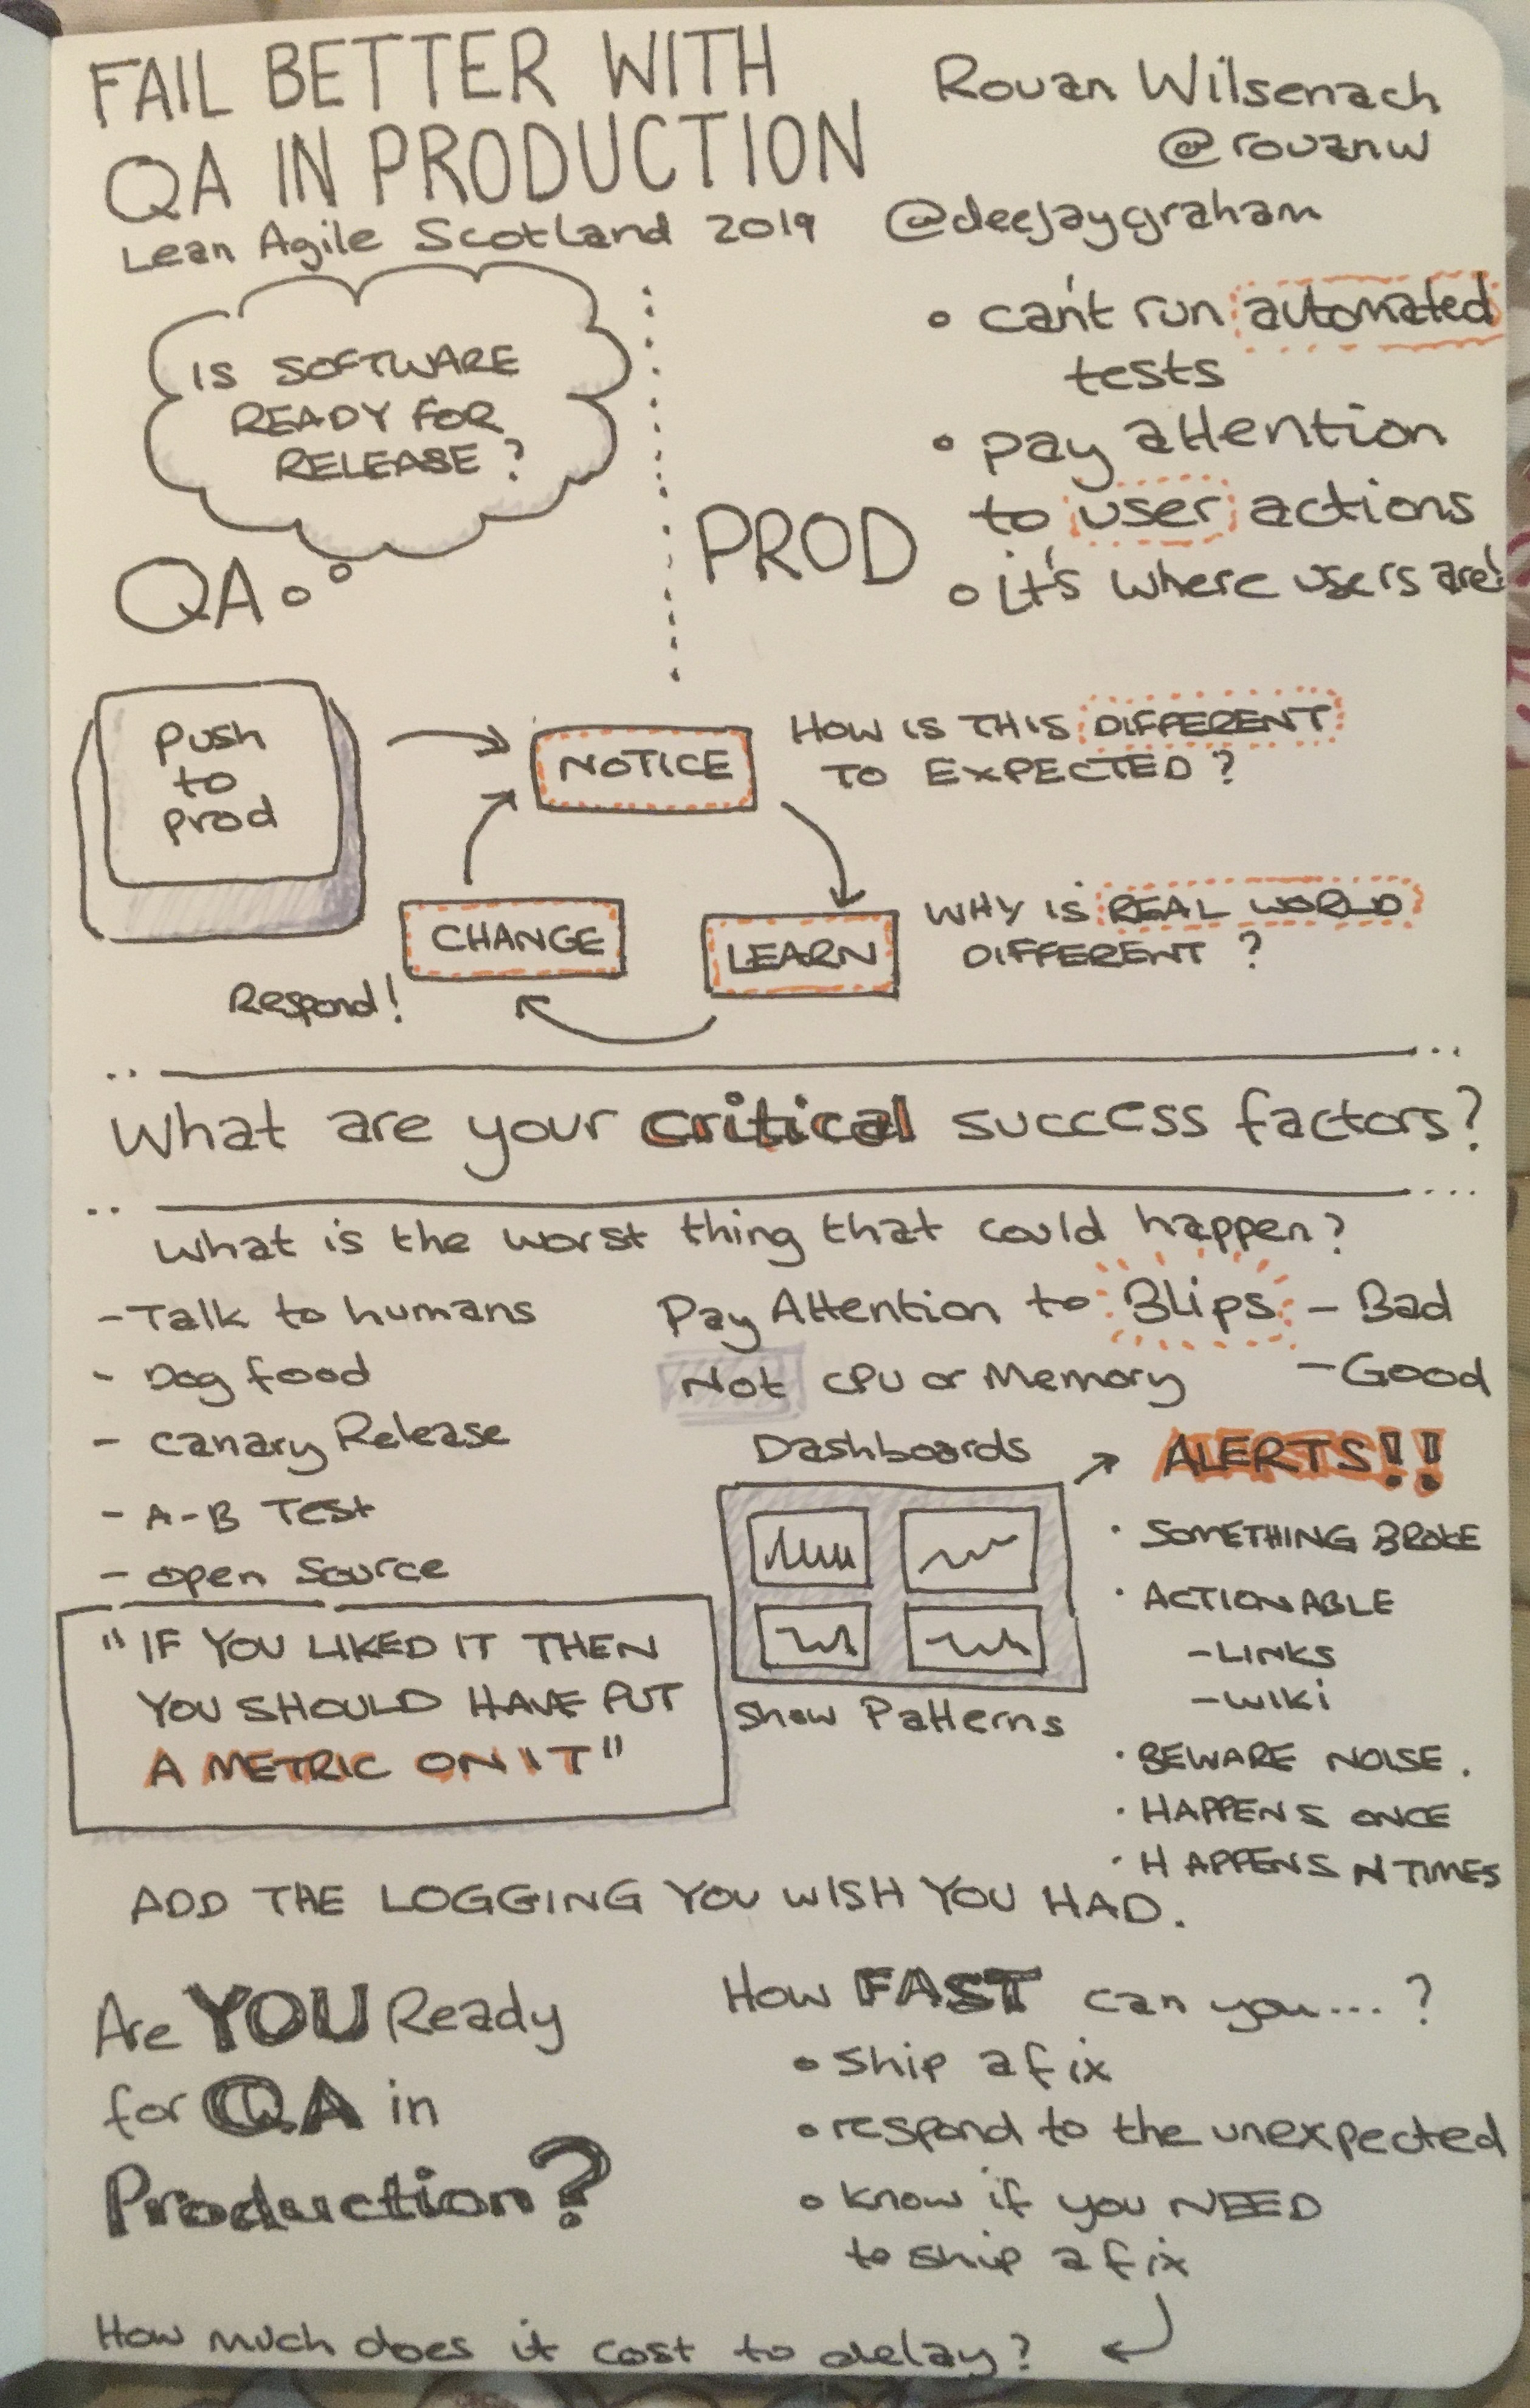 FAIL BETTER WITH
QA IN PRODUCTION
Lean Agile Scotland 2019
Rouan Wilsenach
@rouanw
@deejaygraham
IS SOFTWARE
READY FOR
RELEASE?
QA
PROD
• can't run automated
tests
• pay attention
to user actions
• it's where users are!
Push
to
prod
NOTICE
HOW IS THIS DIFFERENT
TO EXPECTED?
LEARN
WHY IS REAL WORLD
DIFFERENT?
CHANGE
Respond!
What are your critical success factors?
What is the worst thing that could happen?
- Talk to humans
- Dog food
- Canary Release
- A-B Test
- open source
Pay Attention to Blips - Bad
- Good
Not CPU or Memory
Dashboards
Show Patterns
ALERTS!!
• SOMETHING BROKE
• ACTIONABLE
- LINKS
- WIKI
• BEWARE NOISE.
• HAPPENS ONCE
• HAPPENS N TIMES
"IF YOU LIKED IT THEN
YOU SHOULD HAVE PUT
A METRIC ON IT"
ADD THE LOGGING YOU WISH YOU HAD.
Are YOU Ready
for QA in
Production?
How FAST can you...?
• ship a fix
• respond to the unexpected
• know if you NEED
to ship a fix
How much does it cost to delay?